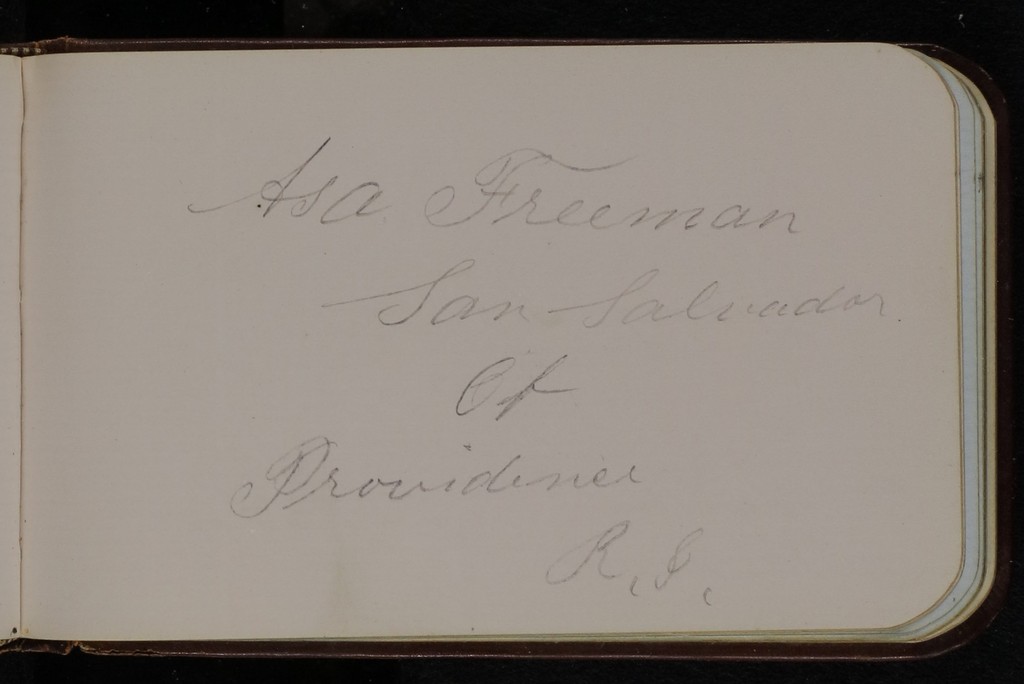 Asa Freeman
San Salvador.
Of
Providence
R, I,